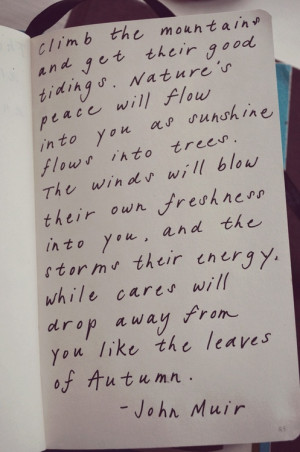 Climb the mountains
and get their good
tidings. Nature's
peace will flow
into you as sunshine
flows into trees.
The winds will blow
their own freshness
into you, and the
storms their energy,
while cares will
drop away from
you like the leaves
of Autumn.
- John Muir